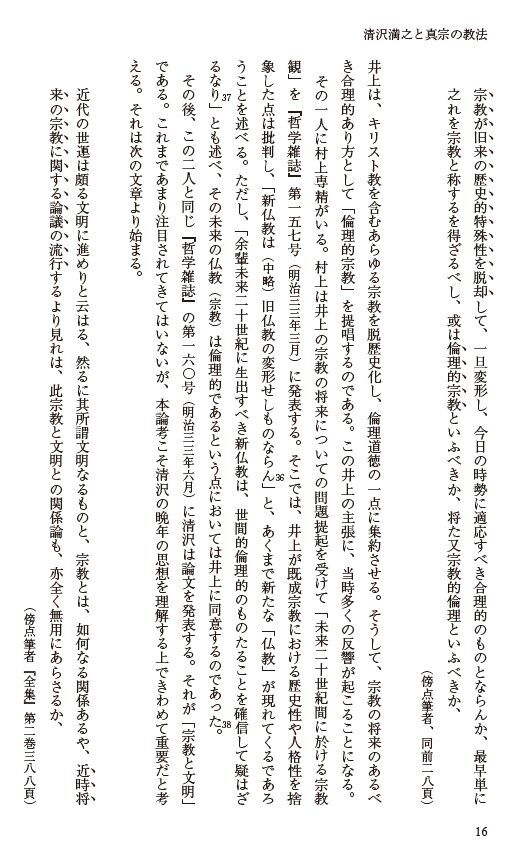 清沢満之と真宗の教法
宗教が旧来の歴史的特殊性を脱却して、一旦変形し、今日の時勢に適応すべき合理的のものとならんか、最早単に
之れを宗教と称するを得ざるべし、或は倫理的宗教といふべきか、将た又宗教的倫理といふべきか、
（傍点筆者、同前二八頁）
井上は、キリスト教を含むあらゆる宗教を脱歴史化し、倫理道徳の一点に集約させる。そうして、宗教の将来のあるべ
き合理的あり方として「倫理的宗教」を提唱するのである。この井上の主張に、当時多くの反響が起こることになる。
その一人に村上専精がいる。村上は井上の宗教の将来についての問題提起を受けて「未来二十世紀間に於ける宗教
観」を『哲学雑誌』第一五七号（明治三三年三月）に発表する。そこでは、井上が既成宗教における歴史性や人格性を捨
象した点は批判し、「新仏教は（中略）旧仏教の変形せしものならん」36と、あくまで新たな「仏教」が現れてくるであろ
うことを述べる。ただし、「余輩未来二十世紀に生出すべき新仏教は、世間的倫理的のものたることを確信して疑はざ
るなり」37とも述べ、その未来の仏教（宗教）は倫理的であるという点においては井上に同意するのであった。38
その後、この二人と同じ『哲学雑誌』の第一六〇号（明治三三年六月）に清沢は論文を発表する。それが「宗教と文明」
である。これまであまり注目されてきてはいないが、本論考こそ清沢の晩年の思想を理解する上できわめて重要だと考
える。それは次の文章より始まる。
近代の世運は頗る文明に進めりと云はる、然るに其所謂文明なるものと、宗教とは、如何なる関係あるや、近時将
来の宗教に関する論議の流行するより見れは、此宗教と文明との関係論も、亦全く無用にあらさるか、
（傍点筆者『全集』第二巻三八八頁）
16